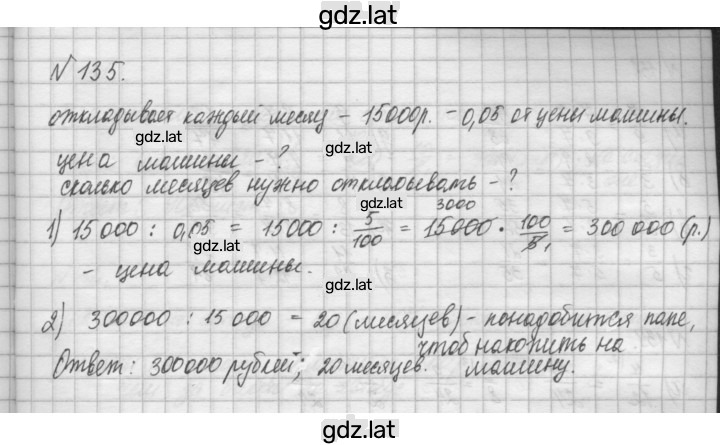 gdz.lat
№ 135.
откладывает каждый месяц – 15000р. – 0,05 от цены машины.
gdz.lat
цена машины – ?
сколько месяцев нужно откладывать – ?
gdz.lat
3000
1) 15 000 : 0,05 = 15000 : 5/100 = 15000 · 100/5 1 = 300 000 (р.)
gdz.lat
– цена машины.
gdz.lat
2) 300000 : 15 000 = 20 (месяцев) – понадобится папе,
чтоб накопить на
Ответ: 300000 рублей; 20 месяцев. машину.
gdz.lat
gdz.lat